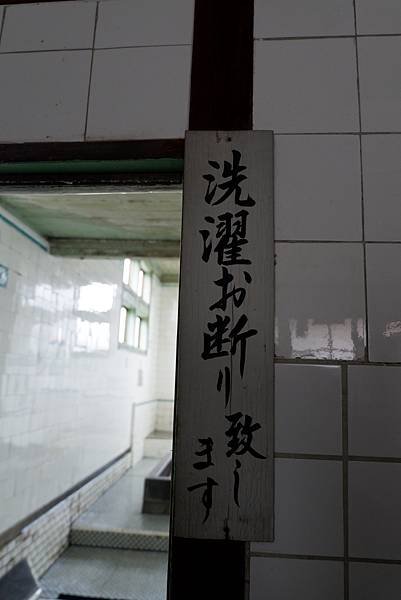 洗濯お断り致し
ます